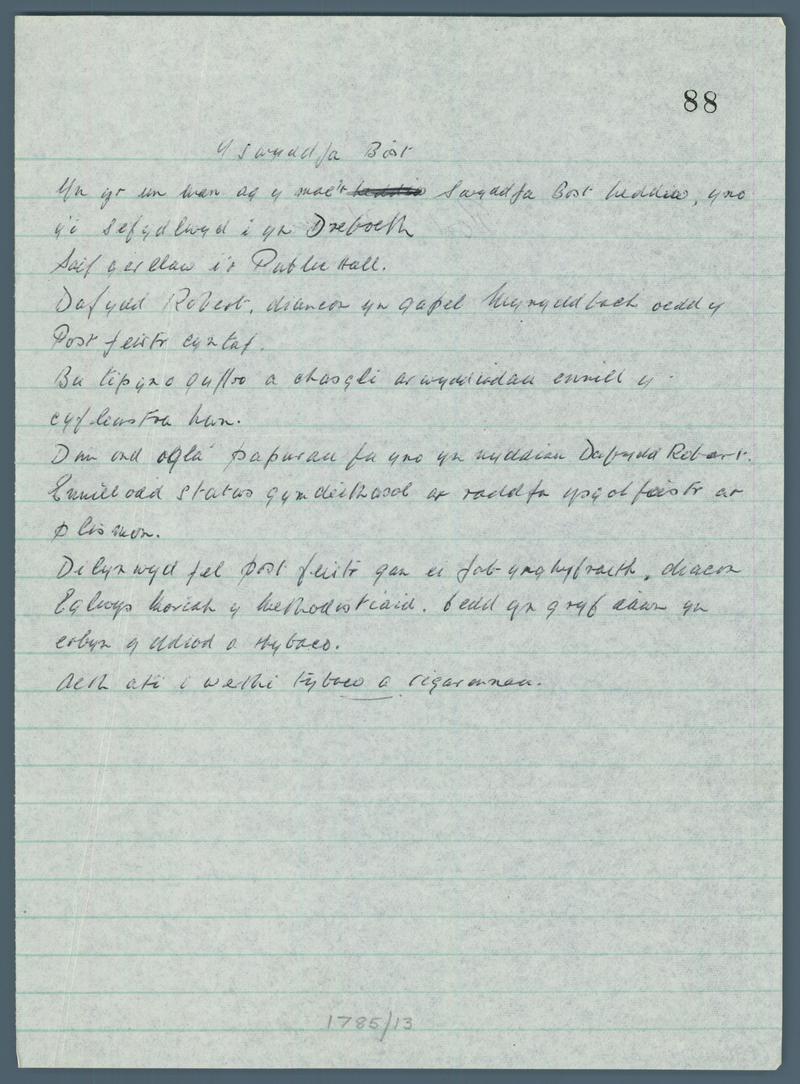 88
Y Swyddfa Bost
Yn yr un man ag y mae'r heddiw Swyddfa Bost heddiw, yno
y'i sefydlwyd i yn Dreboeth
Saif gerllaw i'r Public Hall.
Dafydd Robert, diacon yn gapel Mynyddbach oedd y
Post feistr cyntaf.
Bu tipyn o gyffro a chasgli arwyddiadau ennill y
cyfleustra hwn.
Dim ond ogla' papurau fu yno yn nyddiau Dafydd Robert.
Ennillodd status gymdeithasol ar raddfa ysgolfeistr ar
plismon.
Dilynwyd fel post feistr gan ei fab-ynghyfraith, diacon
Eglwys Moriah y Methodistiaid. Oedd yn gryf iawn yn
erbyn y ddiod a thybaco.
Aeth ati i werthi tybaco a cigarennau.
1785/13